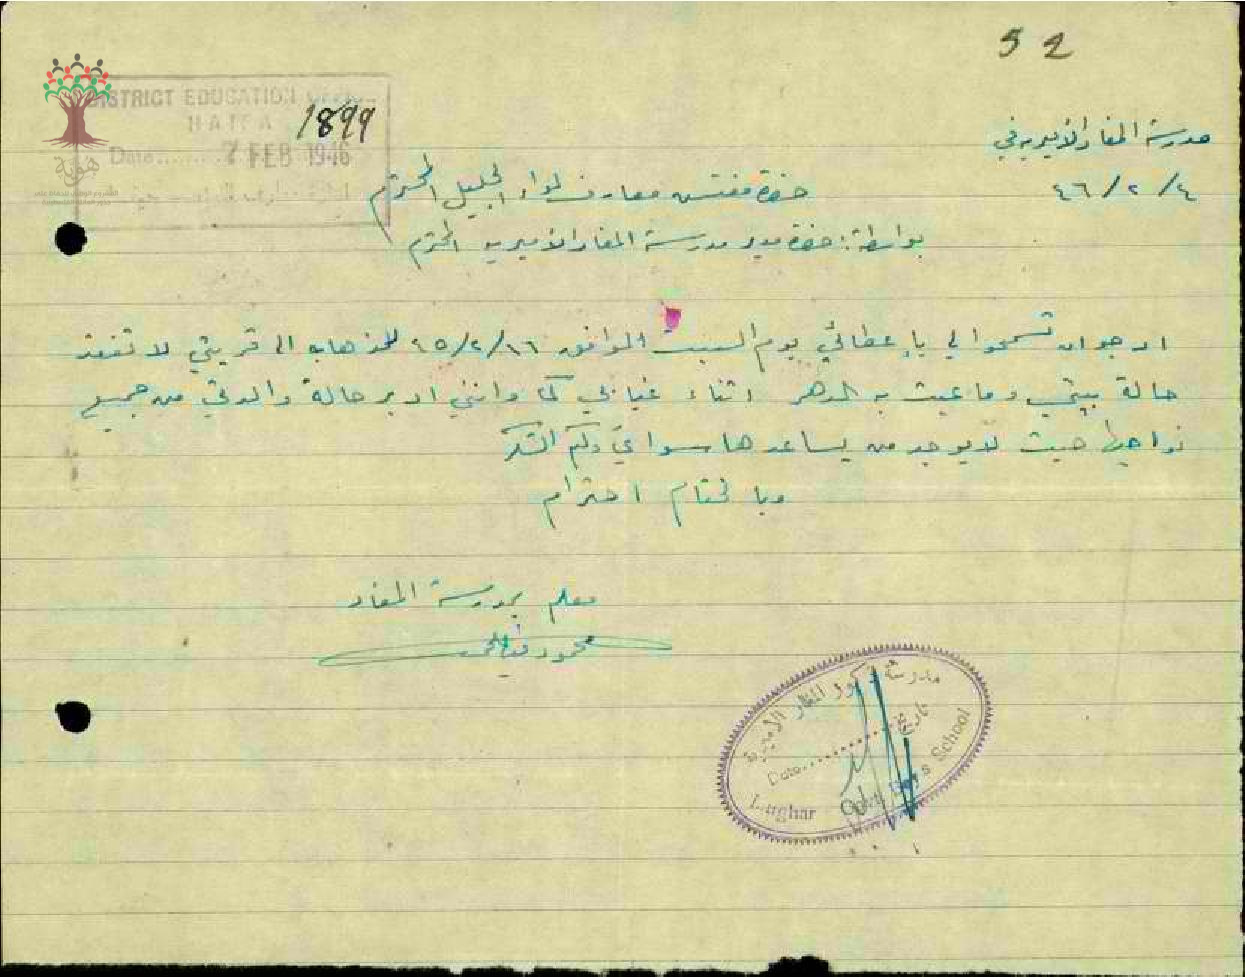 52
DISTRICT EDUCATION
HAIFA
1899
Date........ 7 FEB 1946
هوية
مدرسة المغار الأميرية في
٤/٢/٤٦
حضرة مفتش معارف لواء الجليل المحترم
بواسطة: حضرة مدير مدرسة المغار الأميرية المحترم
ارجو ان تسمحوا لي بإعطائي يوم السبت الموافق ١٦/٢/٤٥ للذهاب الى قريتي لا تفقد
حالة بيتي وما عبث به الدهر اثناء غيابي كما وانني ادبر حالة والدتي من جميع
نواحيها حيث لا يوجد من يساعدها سواي ولكم الشكر
وبالختام احترام
معلم بمدرسة المغار
محمود
مدرسة ذكور المغار الأميرية
تاريخ
Date............
Mughar Govt Boys School